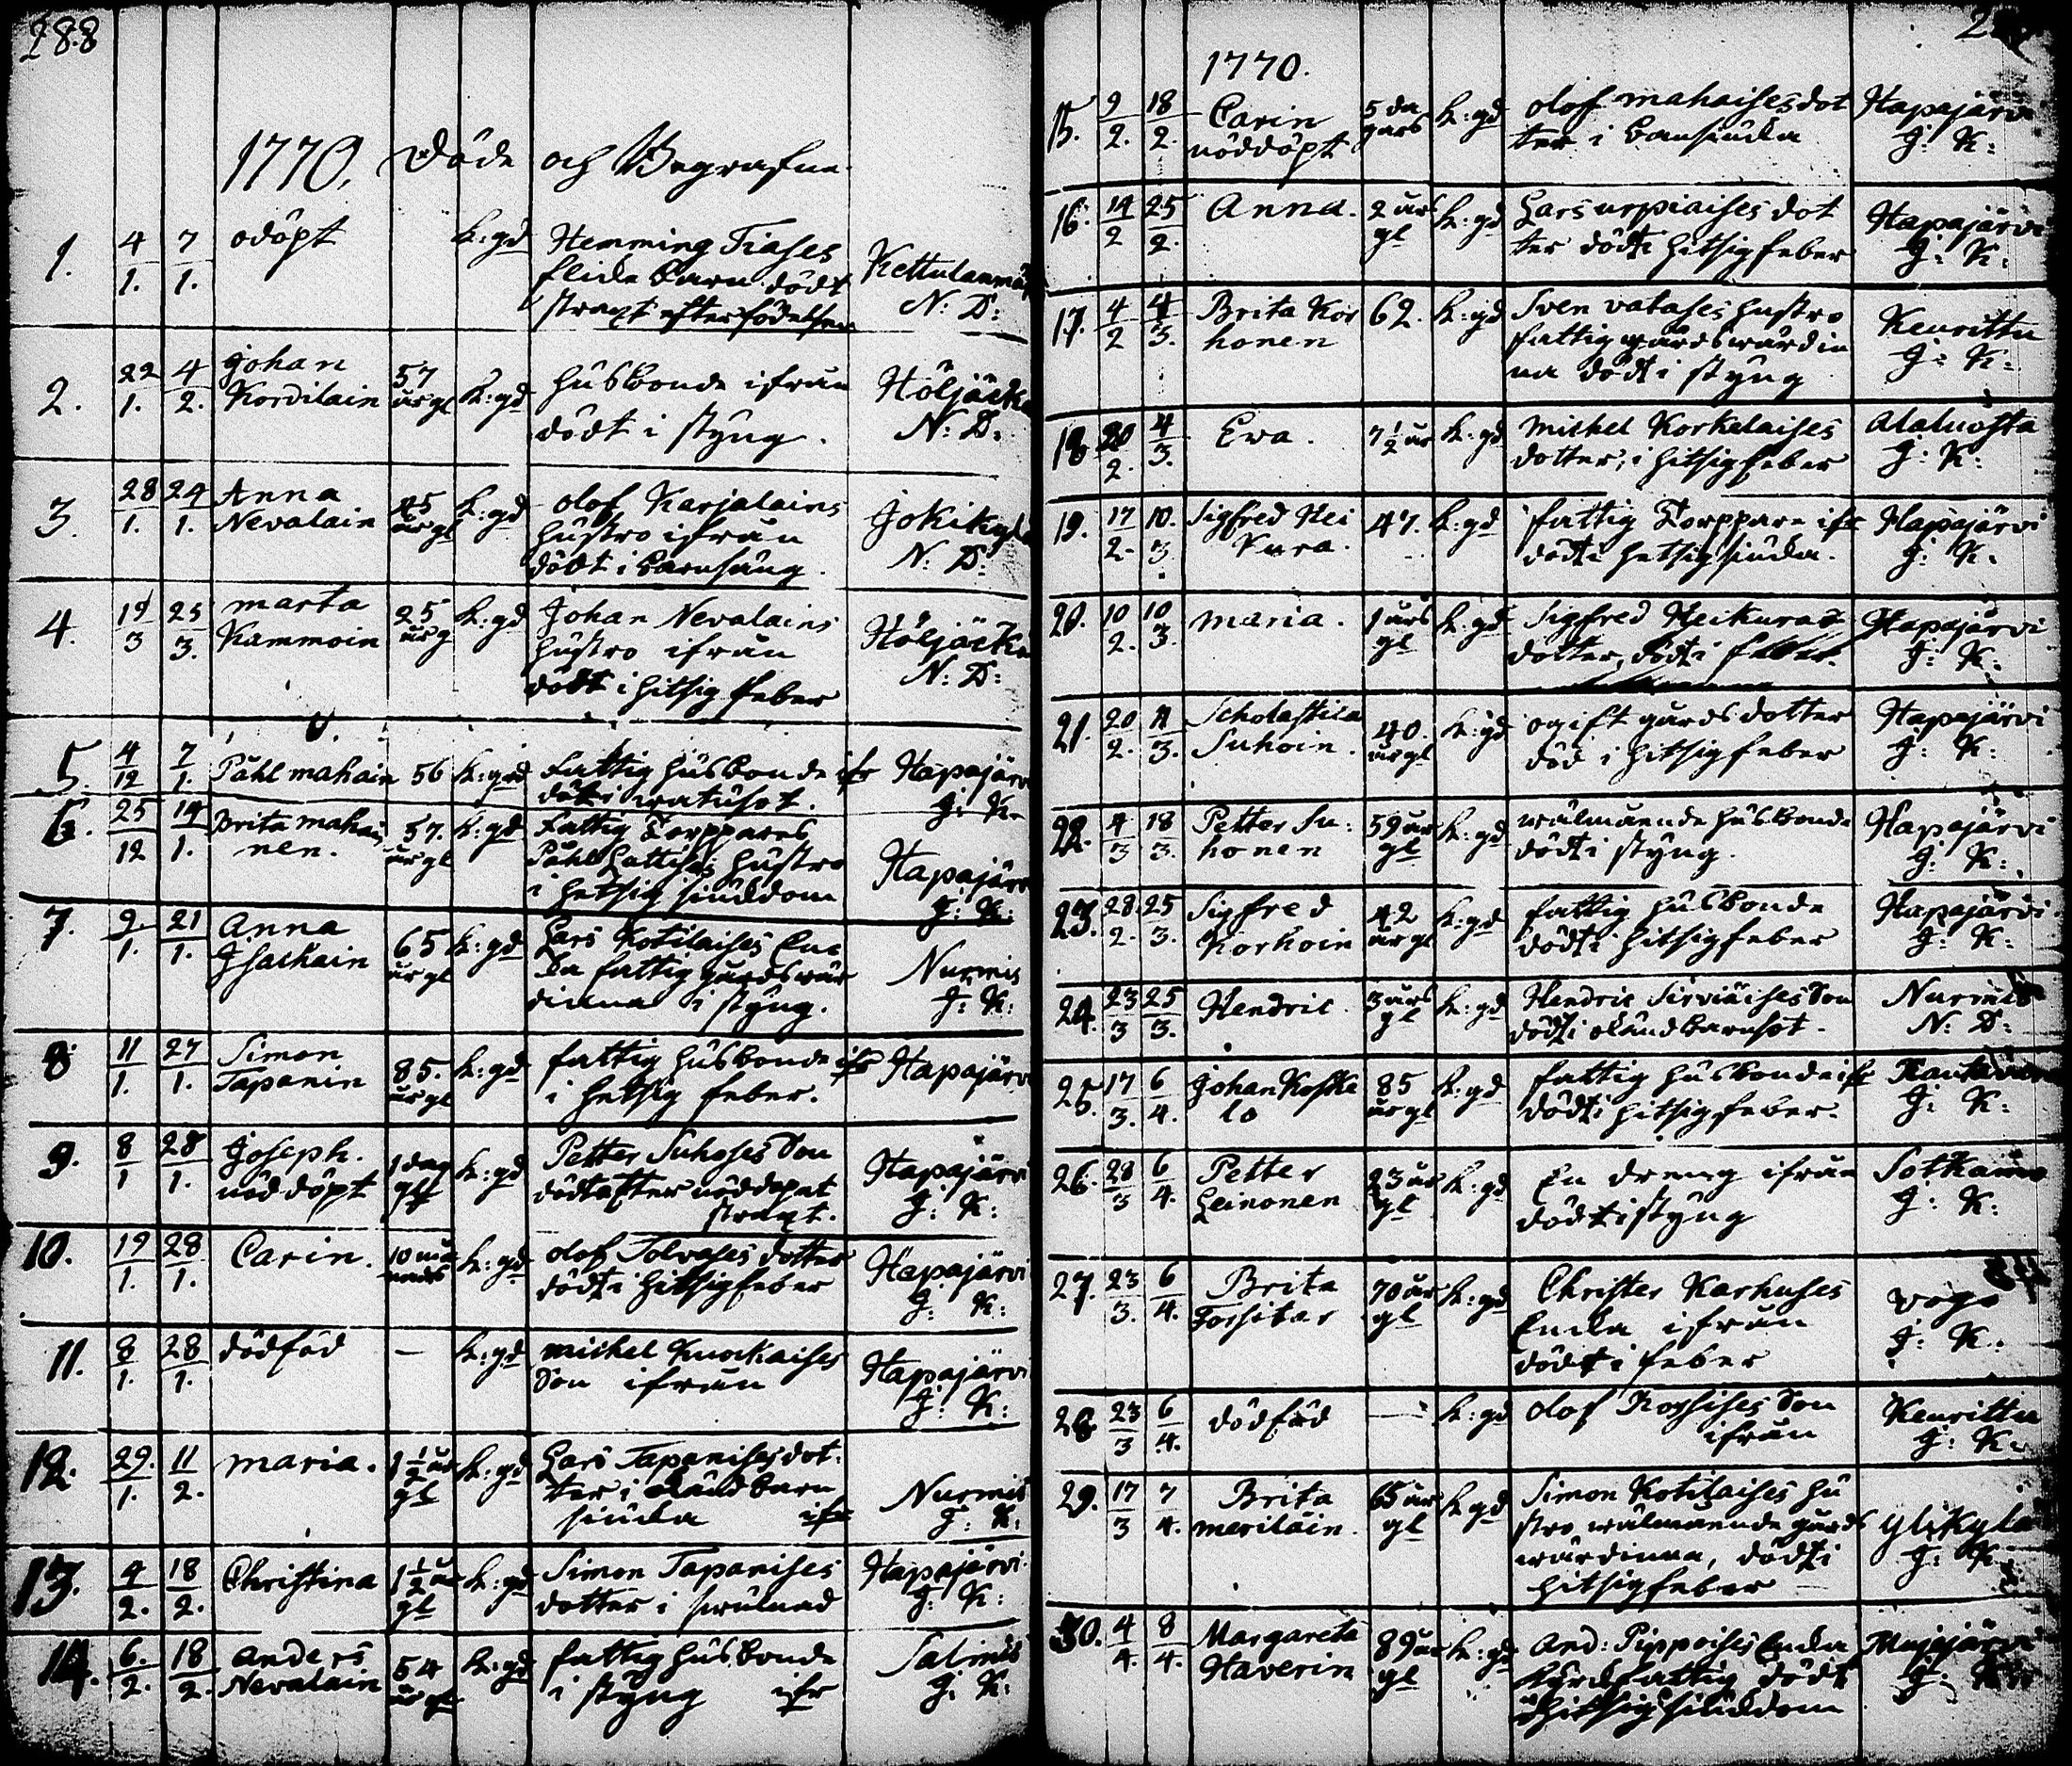 288
1770. Döde och Begrafne.
1. 4/1. 7/1. odöpt k:gd Hemming Tiases
flicka barn dödt
straxt efter födelsen
N: D:
2. 22/1. 4/2. Johan
Kordilain 57
år gl k:gd husbonde ifrån
dödt i styng.
Höljäckä
N: D:
3. 28/1. 24/1. Anna
Nevalain 45
år gl k:gd olof Karjalains
hustro ifrån
dödt i barnsäng.
Jokikylä
N: D:
4. 19/3 25/3. marta
Kammoin 25
år g k:gd Johan Nevalains
hustro ifrån
dödt i hitsig feber
Höljäckä
N: D:
5. 4/12 7/1. Påhl mahain 56 k:grd Fattig husbonde ifr
dödt i watusot.
Hapajärvi
J: K.
6. 25/12 14/1. Brita mahai
nen. 57.
år gl k:gd Fattig Torppares
Påhl hustro
i hetsig siukdom
Hapajärvi
J: K:
7. 9/1. 21/1. Anna
Isackain 65
år gl k:gd Lars Kotilaises Enc
ka fattig gårdswär
dinna i styng.
Nurmis
J: K:
8. 11/1. 27/1. Simon
Tapanin 85.
år gl k:gd fattig husbonde ifr
i hetsig feber.
Hapajärvi
9. 8/1 28/1. Joseph.
nöddöpt 1 dag
k:gd Petter Suhoses Son
dödt after nöddopet
straxt.
Hapajärvi
J: K:
10. 19/1. 28/1. Carin. 10 må
nads k:gd olof Tolvases dotter
dödt i hitsig feber
Hapajärvi
J: K:
11. 8/1. 28/1. dödföd — k:gd michel Kuockaises
Son ifrån
Hapajärvi
J: K:
12. 29./1. 11/2. maria. 1 1/2 år
gl k:gd Lars Tapanises dot:
ter i barn
siucka ifr
Nurmis
J: K:
13. 4/2. 18/2. Christina 1 1/2 å
gl k:gd Simon Tapanises
dotter i
Hapajärvi.
J: K:
14. 6./2. 18/2. Anders
Nevalain 54
år gl k:gd fattig husbonde
i styng ifr
Salmis
J: K:
1770.
15. 9/2. 18/2. Carin
nöddöpt 5 da
gars k:gd olof mahaises dot
ter i
Hapajärvi
J: K:
16. 14/2 25/2. Anna. 2 års
gl k:gd Lars urpiaises dot
ter dödt i hitsig feber
Hapajärvi
J: K:
17. 4/2 4/3. Brita Kor
honen 62. k:gd Sven vatases hustro
fattig gårdswärdin
na dödt i styng
J: K:
18 20/2. 4/3. Ewa. 7 1/2 år k:gd michel Korkalaises
dotter, i hitsig feber
Alaluosta
J: K:
19. 17/2. 10./3 Sigfred Hei
kura. 47. k:gd fattig Torppare ifr
dödt i hetsig siucka.
Hapajärvi
J: K.
20. 10/2. 10/3. maria. 1 års
gl k:gd Sigfred Heikuras
dotter, dödt i feber.
Hapajärvi
J: K:
21. 20/2. 11/3. Scholastica
Suhoin. 40.
år gl k:gd ogift gårds dotter
död i hitsig feber
Hapajärvi
J: K:
22. 4/3 18/3. Petter Su:
honen 59 år
gl k:gd wälmående husbonde
dödt i styng.
Hapajärvi
J: K:
23. 28./2. 25/3. Sigfred
Korhoin 42
år gl k:gd fattig husbonde
dödt i hitsig feber
Hapajärvi
J: K:
24. 23/3 25/3. Hendric 3 års
gl k:gd Hendric Sirviäises Son
dödt i
Nurmis
N: D:
25. 17/3. 6/4. Johan Koska
lo 85
år gl k:gd fattig husbonde ifr
dödt i hitsig feber.
J: K:
26. 28/3 6/4. Petter
Leinonen 23 år
gl k:gd En dreng ifrån
dödt i styng
Sotkamo
J: K:
27. 23/3. 6/4. Brita
Torsitar 70 år
gl k:gd Christer Karhuses
Encka ifrån
dödt i feber
J: K:
28 23/3 6/4. dödföd — k:gd olof Son
ifrån
J: K:
29. 17/3 7/4. Brita
meriläin. 65 år
gl k gd Simon Kotilaises hu
stro, wälmående gårds
wärdinna, dödt i
hitsig feber
Ylikylä
J: K.
30. 4/4. 8/4. Margareta
Haverin 89 år
gl k:gd And: Pippoises Encka
fattig dödt
i hitsig siuckdom
Mujejärvi
J: K: